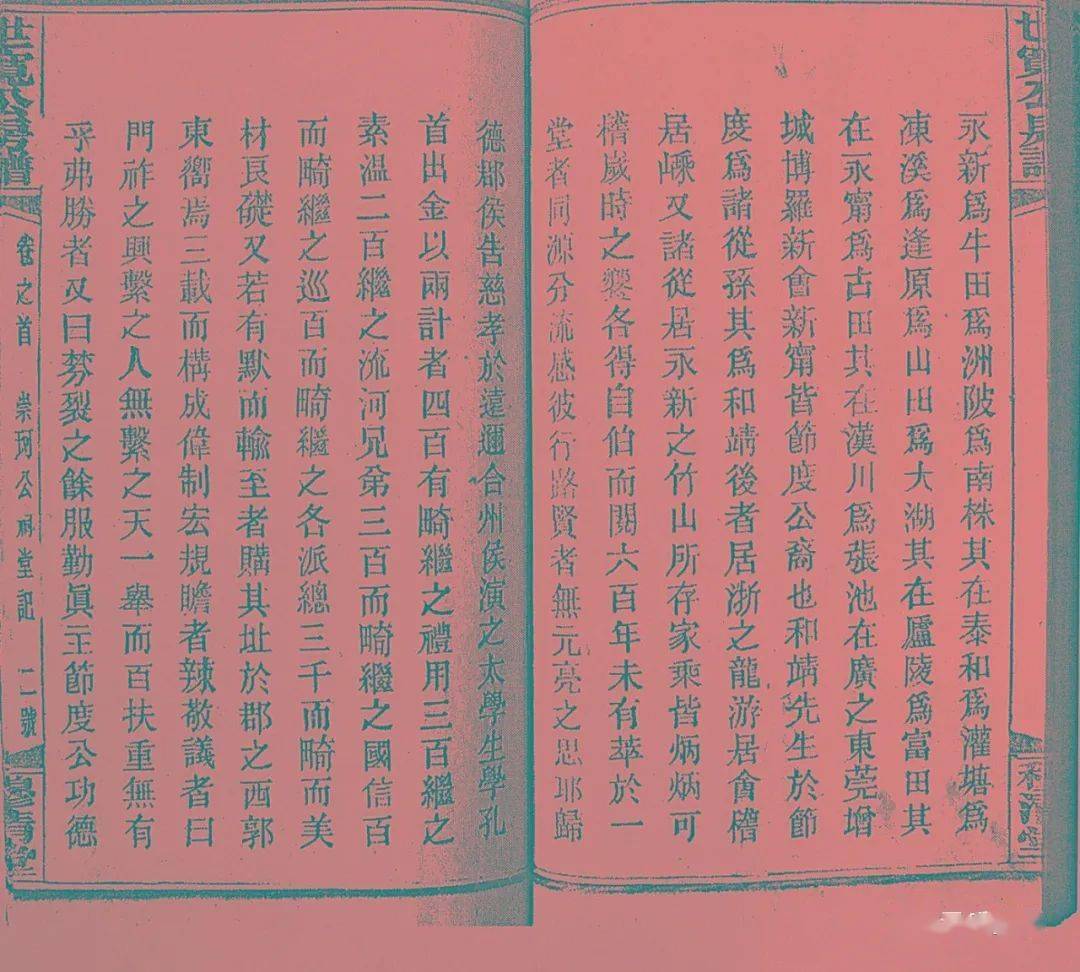 永新爲牛田爲洲陂爲南株其在泰和爲灌塘爲
凍溪爲逢原爲山田爲大湖其在廬陵爲富田其
在永甯爲古田其在漢川爲張池在廣之東莞增
城博羅新會新甯皆節度公裔也和靖先生於節
度爲諸從孫其爲和靖後者居浙之龍游居會稽
居嵊又諸從居永新之竹山所存家乘皆炳炳可
稽歲時之饗各得自伯而閱六百年未有萃於一
堂者同源分流感彼行路賢者無元亮之思耶歸
德郡侯吿慈孝於遠邇合州侯演之太學生學孔
首出金以兩計者四百有畸繼之禮用三百繼之
素温二百繼之流河兄弟三百而畸繼之國信百
而畸繼之巡百而畸繼之各派總三千而畸而美
材良礎又若有默而輸至者購其址於郡之西郭
東嚮焉三載而構成偉制宏規瞻者辣敬議者曰
門祚之興繫之人無繫之天一舉而百扶重無有
乎弗勝者又曰棼裂之餘服勤眞至節度公功德
卷之首 崇珂公祠堂記 二號